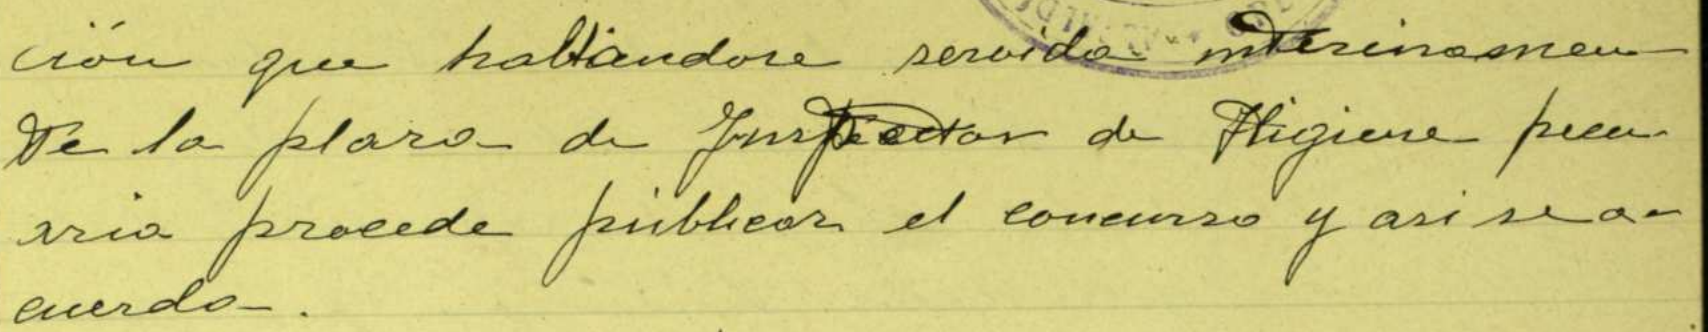 ción que hallandose servida interinamen
te la plaza de Inspector de Higiene pecu
aria procede públicar el concurso y asi se a-
cuerda.